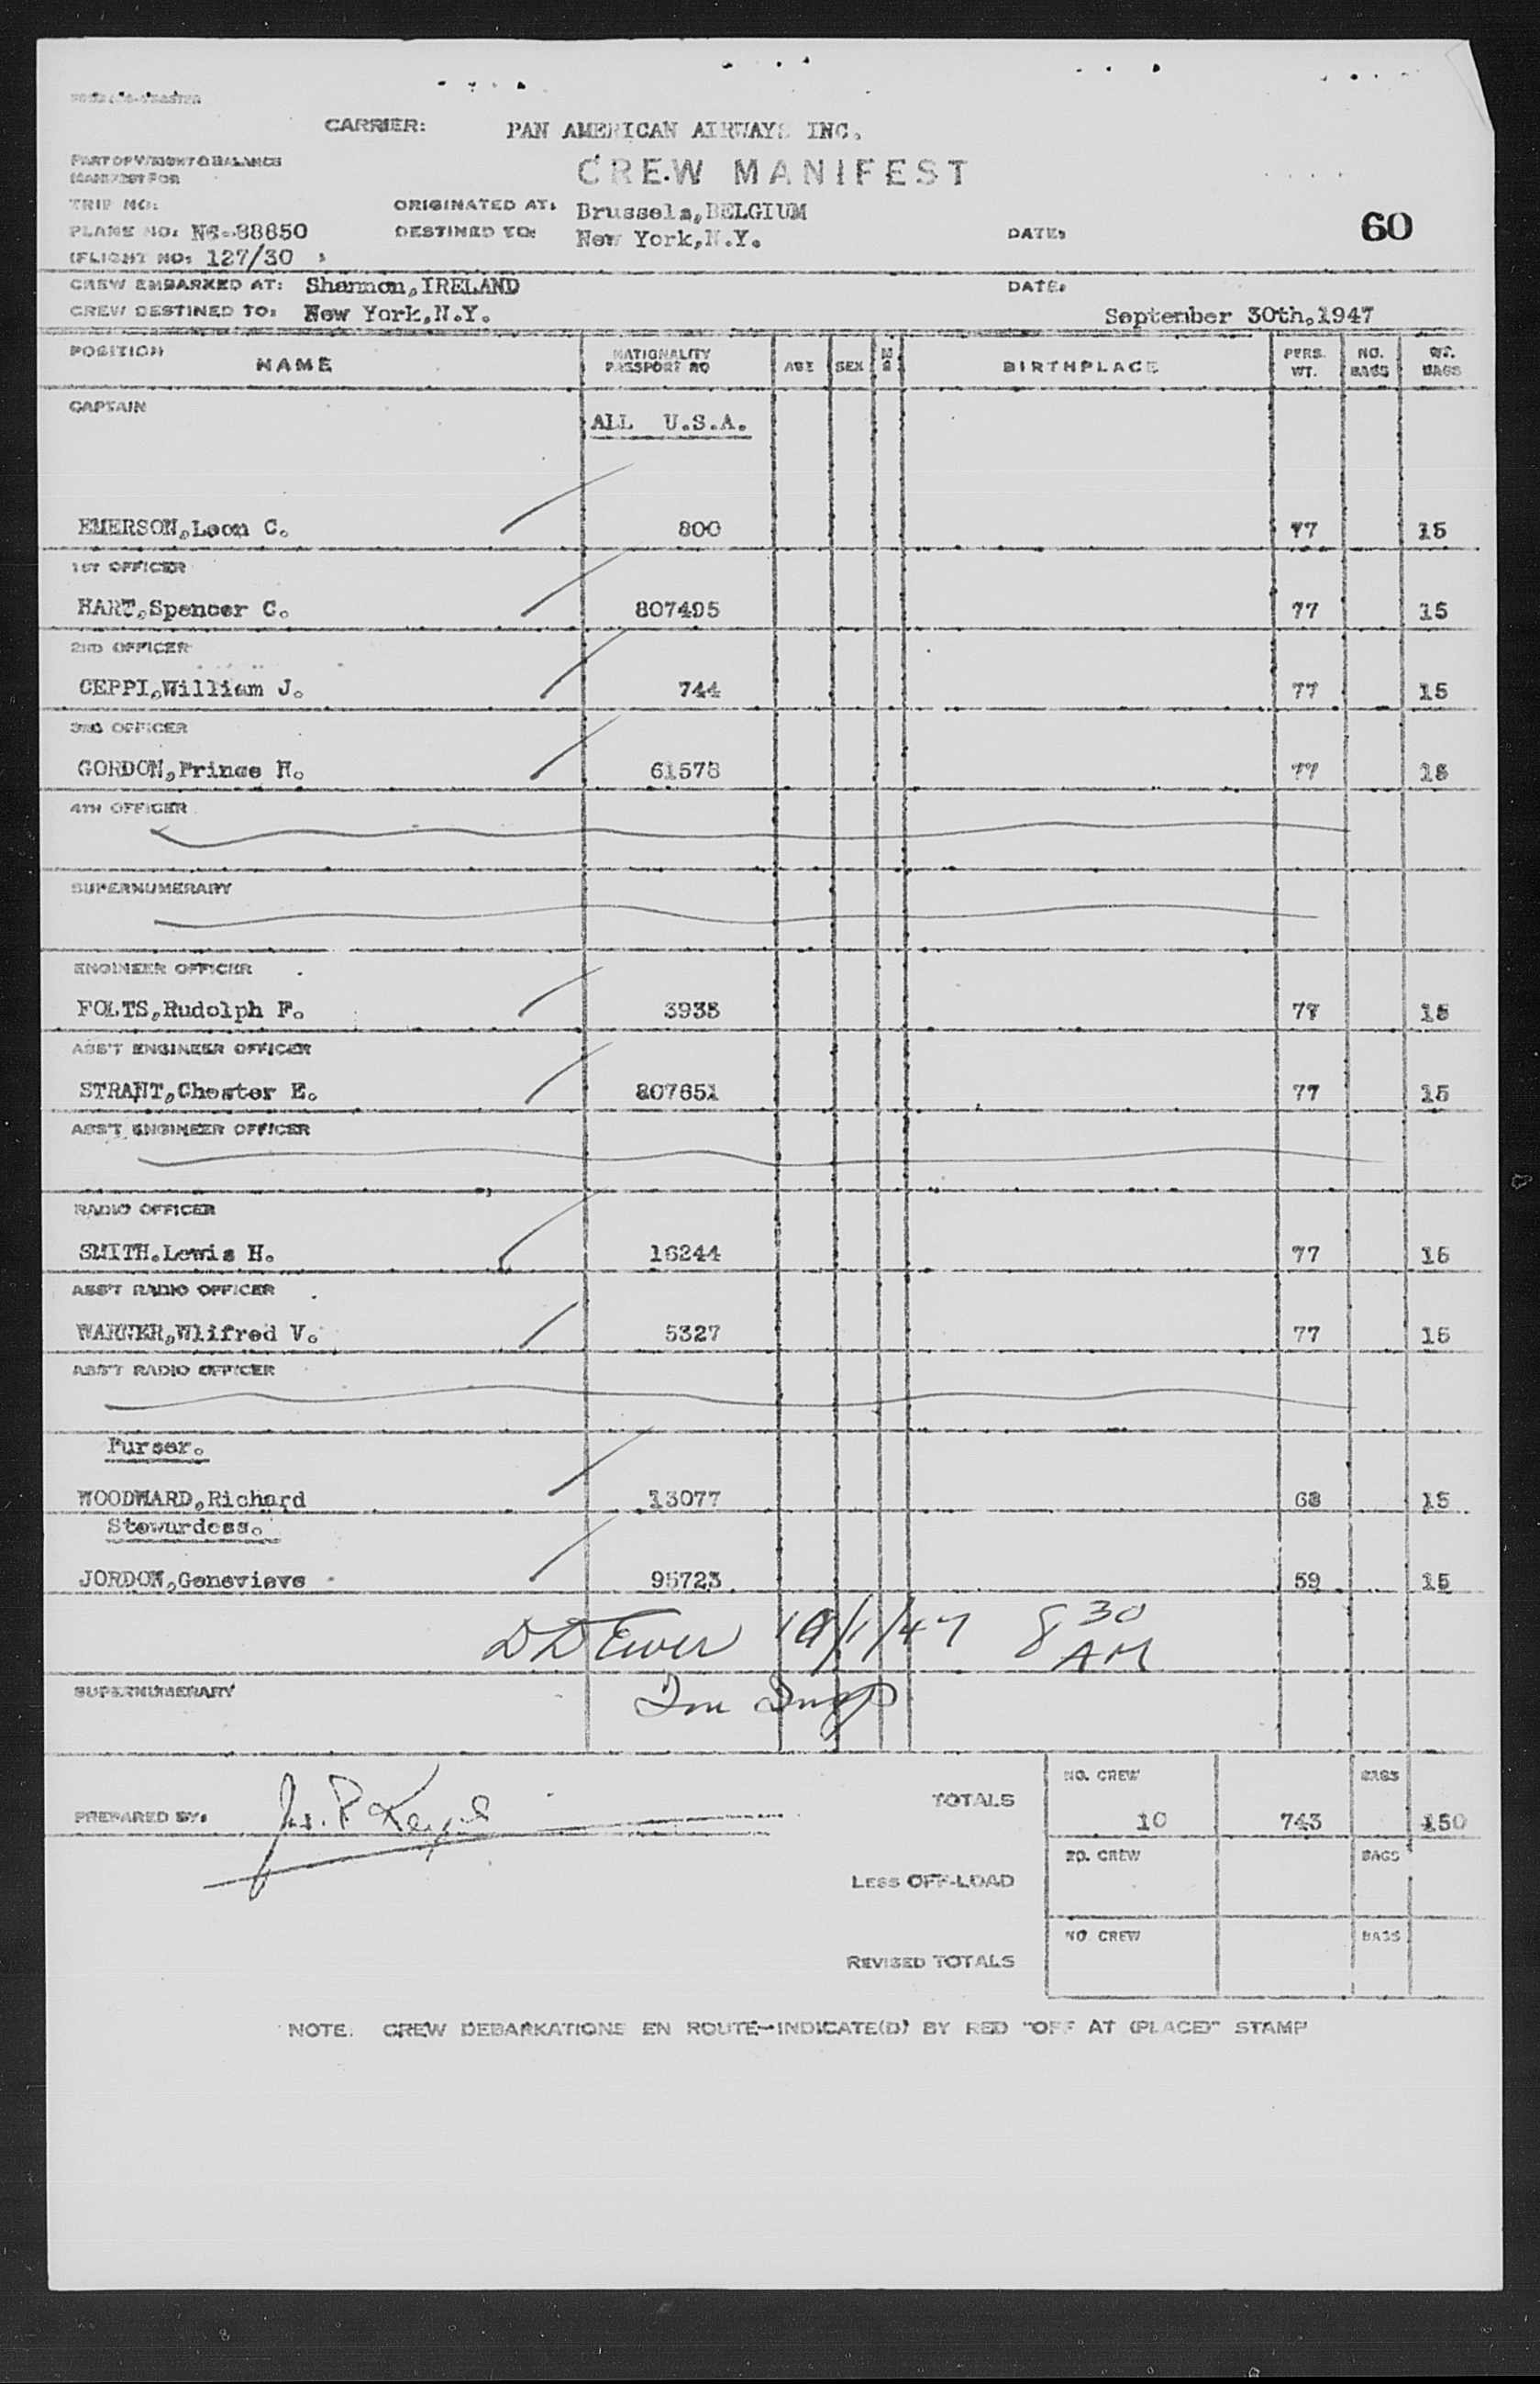 CARRIER: PAN AMERICAN AIRWAYS INC.
PART OF WEIGHT & BALANCE
MANIFEST FOR
CREW MANIFEST
TRIP NO:
ORIGINATED AT: Brussels,BELGIUM
PLANE NO: NC-88850
DESTINED TO: New York,N.Y.
DATE:
60
(FLIGHT NO: 127/30
CREW EMBARKED AT: Shannon,IRELAND
DATE:
CREW DESTINED TO: New York,N.Y.
September 30th,1947
POSITION NAME NATIONALITY PASSPORT NO AGE SEX M S BIRTHPLACE PERS. WT. NO. BAGS WT. BAGS
CAPTAIN
ALL U.S.A.
EMERSON,Leon C. 800 77 15
1ST OFFICER
HART,Spencer C. 807495 77 15
2ND OFFICER
CEPPI,William J. 744 77 15
3RD OFFICER
GORDON,Prince H. 61578 77 15
4TH OFFICER
SUPERNUMERARY
ENGINEER OFFICER
FOLTS,Rudolph F. 3938 77 15
ASS'T ENGINEER OFFICER
STRANT,Chester E. 807651 77 15
ASS'T ENGINEER OFFICER
RADIO OFFICER
SMITH.Lewis H. 16244 77 15
ASS'T RADIO OFFICER
WARNER,Wlifred V. 5327 77 15
ASS'T RADIO OFFICER
Purser.
WOODWARD,Richard 13077 68 15
Stewardess.
JORDON,Genevieve 95723 59 15
DD Ewer 10/1/47 8 30
AM
Im Insp
SUPERNUMERARY
NO. CREW BAGS
TOTALS
PREPARED BY: Jas. P.
10 743 150
NO. CREW BAGS
LESS OFF-LOAD
NO CREW BAGS
REVISED TOTALS
NOTE: CREW DEBARKATIONS EN ROUTE-INDICATE(D) BY RED "OFF AT (PLACE)" STAMP